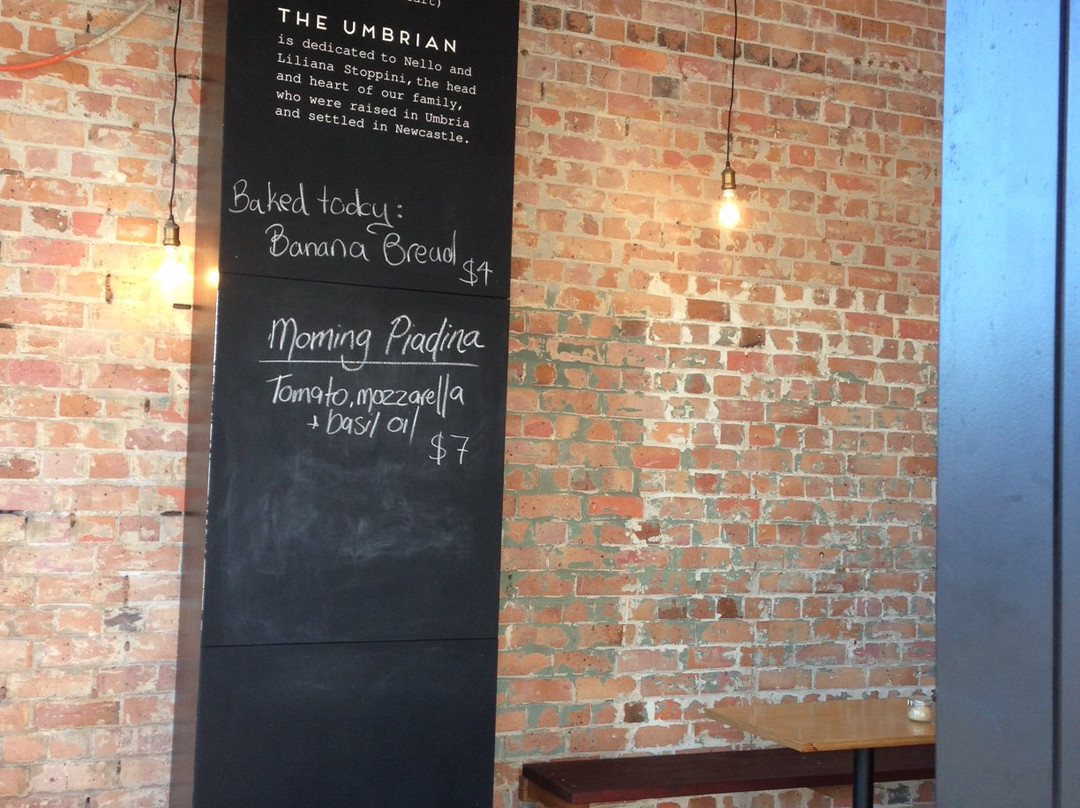 THE UMBRIAN
is dedicated to Nello and
Liliana Stoppini, the head
and heart of our family,
who were raised in Umbria
and settled in Newcastle.
Baked today:
Banana Bread
$4
Morning Piadina
Tomato, mozzarella
+ basil oil
$7